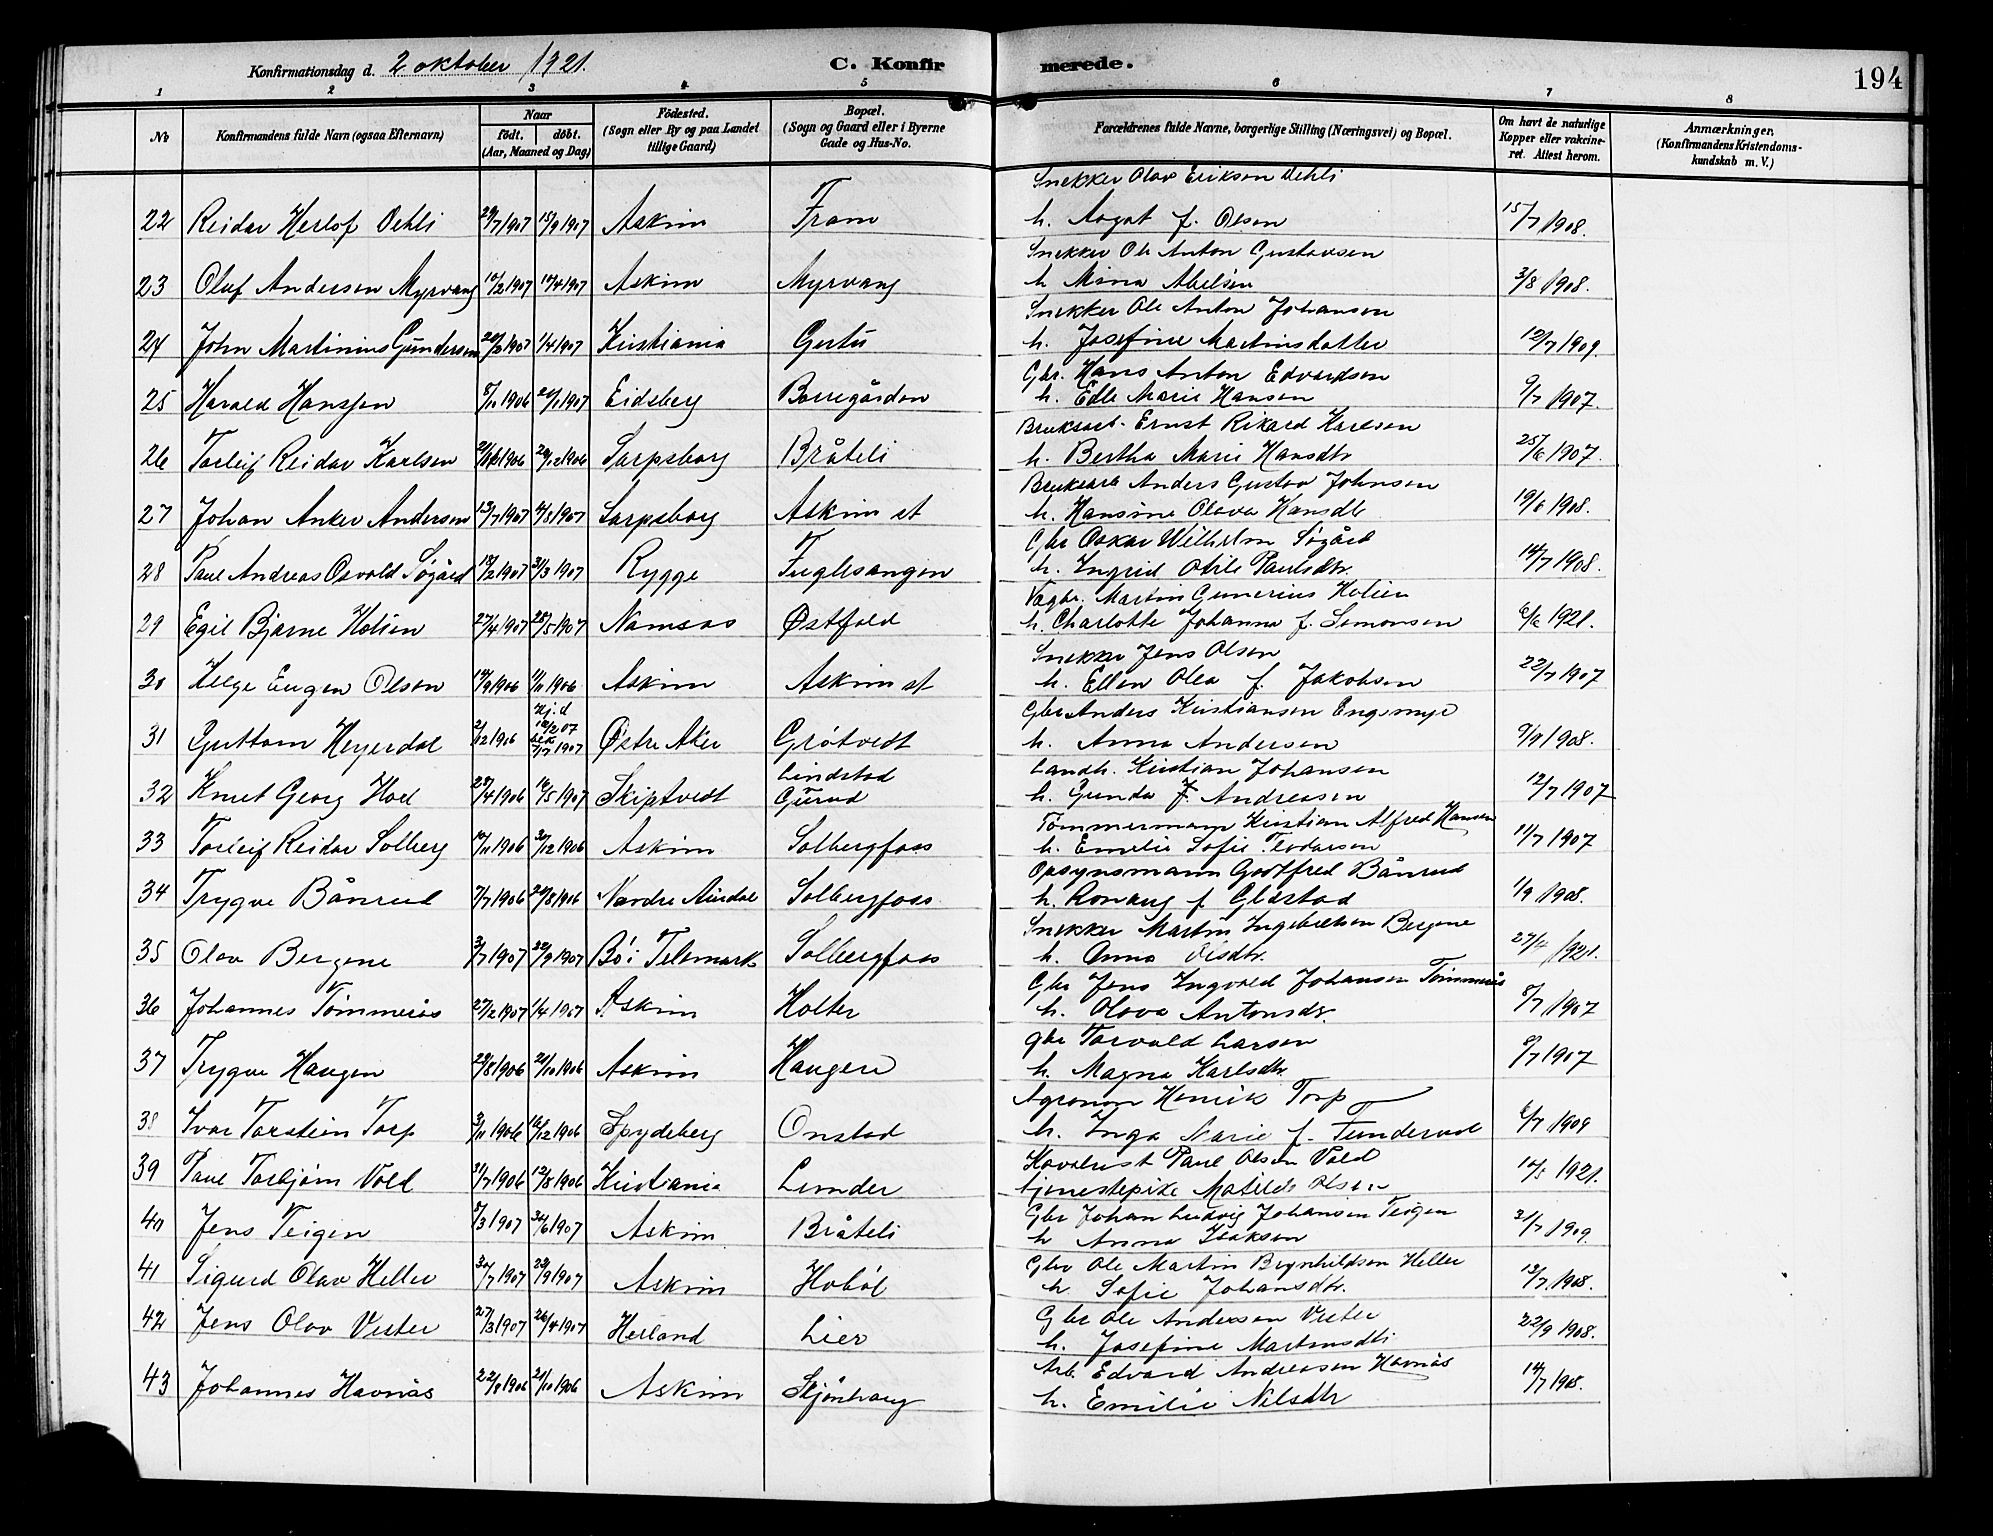 Konfirmationsdag d. 2 oktober 1921. C. Konfirmerede. 194
1 2 3 4 5 6 7 8
No Konfirmandens fulde Navn (ogsaa Efternavn) Naar født. døbt. (Aar, Maaned og Dag) Fødested. (Sogn eller By og paa Landet tillige Gaard) Bopæl. (Sogn og Gaard eller i Byerne Gade og Hus-No. Forældrenes fulde Navne, borgerlige Stilling (Næringsvei) og Bopæl. Om havt de naturlige Kopper eller vakcineret. Attest herom. Anmærkninger. (Konfirmandens Kristendomskundskab m. V.)
Snekker Olav Erikson Oehli
22 Reidar Herlof Oehli 29/7 1907 15/9 1907 Askim Fram h. Aagot f. Olson 15/7 1908.
Snekker Ole Anton Gustavsen
23 Oluf Anderson Myrvang 10/2 1907 14/4 1907 Askim Myrvang h Mina Abelsen 3/8 1908.
Snekker Ole Anton Johansen
24 John Martinius Gundersen 20/2 1907 1/4 1907 Kristiania Gertu h. Josefine Martinsdatter 12/7 1909.
Gbr. Hans Anton Edvardson
25 Harald Hansson 8/11 1906 20/1 1907 Eidsberg Borregården h. Edle Marie Hanson 9/7 1907.
Bruksarb. Ernst Rikard Karlson
26 Torleif Reidar Karlsen 1906 26/12 1906 Sarpsborg Bråteli h. Bertha Marie Hansdtr 25/6 1907.
Bruksarb Anders Gustav Johnson
27 Johan Anker Anderson 13/7 1907 4/8 1907 Sarpsborg Askim st h. Hansine Olava Hansdtr 19/6 1908.
Gbr Oskar Wilhelm Søgård
28 Paul Andreas Osvald Søgård 12/2 1907 31/3 1907 Rygge Fuglesangen h. Ingrid Otilie Paulsdtr. 14/7 1908.
Martin Gunerius Holien
29 Egil Bjarne Holien 27/4 1907 28/5 1907 Namsos Østfold h. Charlotte Johanna f. Simonsen 6/6 1921.
Snekker Jens Olson
30 Helge Eugen Olson 14/9 1906 11/11 1906 Askim Askim st h. Ellen Olea f. Jakobsen 22/7 1907
Hj.d Gbr Anders Kristiansen Engsmyr
31 Guttorm Heyerdal 2/12 1906 12/2 07 bek 7/7 1907 Østre Aker Grøtvedt h. Anna Andersen 9/9 1908.
Lindstad Landh. Kristian Johansen
32 Knut Georg Hoel 28/4 1906 16/5 1907 Skiptvedt Gurud h. Gunda f. Andreasen 12/7 1907
Tømmermann Kristian Alfred Hansen
33 Torleif Reidar Solberg 14/11 1906 30/12 1906 Askim Solbergfoss h. Emilie Sofie Teodorson 11/7 1907
Opsynsmann Godtfred Bånrud
34 Trygve Bånrud 7/7 1906 26/8 1906 Nordre Aurdal Solbergfoss h. Ronaug f Gladstad 1/9 1908.
Snekker Martin Ingebretson Bergene
35 Olav Bergene 3/7 1907 22/9 1907 Bø i Telemark Solbergfoss h. Anna Olsdtr. 27/4 1921.
Gbr Jens Ingvald Johansen Tømmerås
36 Johannes Tømmerås 27/2 1907 1/4 1907 Askim Holter h. Olava Antonsdr. 8/7 1907
gbr Torvald Larson
37 Trygve Haugen 29/8 1906 21/10 1906 Askim Haugen h. Magna Karlsdtr. 9/7 1907
Agronom Henrik Torp
38 Ivar Torstein Torp 3/11 1906 16/12 1906 Spydeberg Onstad h. Inga Marie f. Tunderud 6/7 1909
Kavalerist Paul Olsen Vold
39 Paul Torbjørn Vold 31/7 1906 12/8 1906 Kristiania Lunder tjenestepike Matilde Olsen 14/5 1921.
Gbr Johan Ludvig Johansen Teigen
40 Jens Teigen 8/3 1907 30/6 1907 Askim Bråteli h Anna Isakson 21/7 1909.
Gbr Ole Martin Brynhildsen Heller
41 Sigurd Olav Heller 30/7 1907 29/9 1907 Askim Hobøl h Sofie Johansdtr. 13/7 1908.
Gbr Ole Andersen Vister
42 Jens Olav Vister 27/3 1907 26/4 1907 Herland Lier h. Josefine Martinsdtr 22/9 1908.
Arb. Edvard Andreasen Havnås
43 Johannes Havnås 22/9 1906 21/10 1906 Askim Skjønhaug h. Emilie Nilsdtr 14/7 1908.